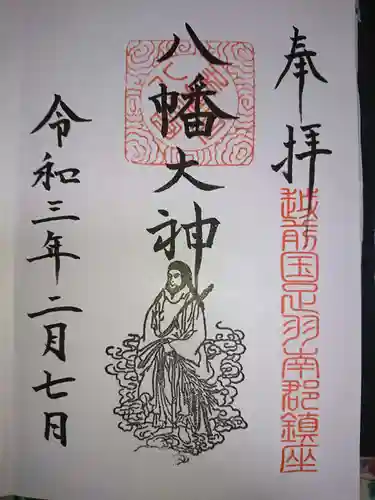 奉拝
越前国足羽南郡鎮座
八幡大神
令和三年二月七日